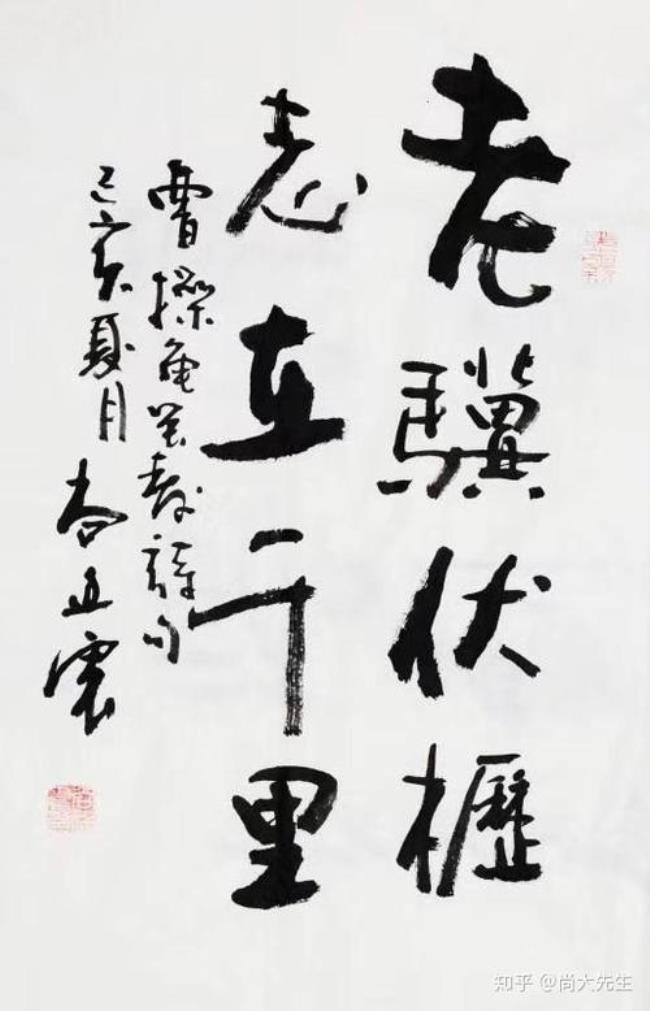 老驥伏櫪
志在千里
曹操龜雖壽詩句
己亥夏月 尚
知乎 @尚大先生